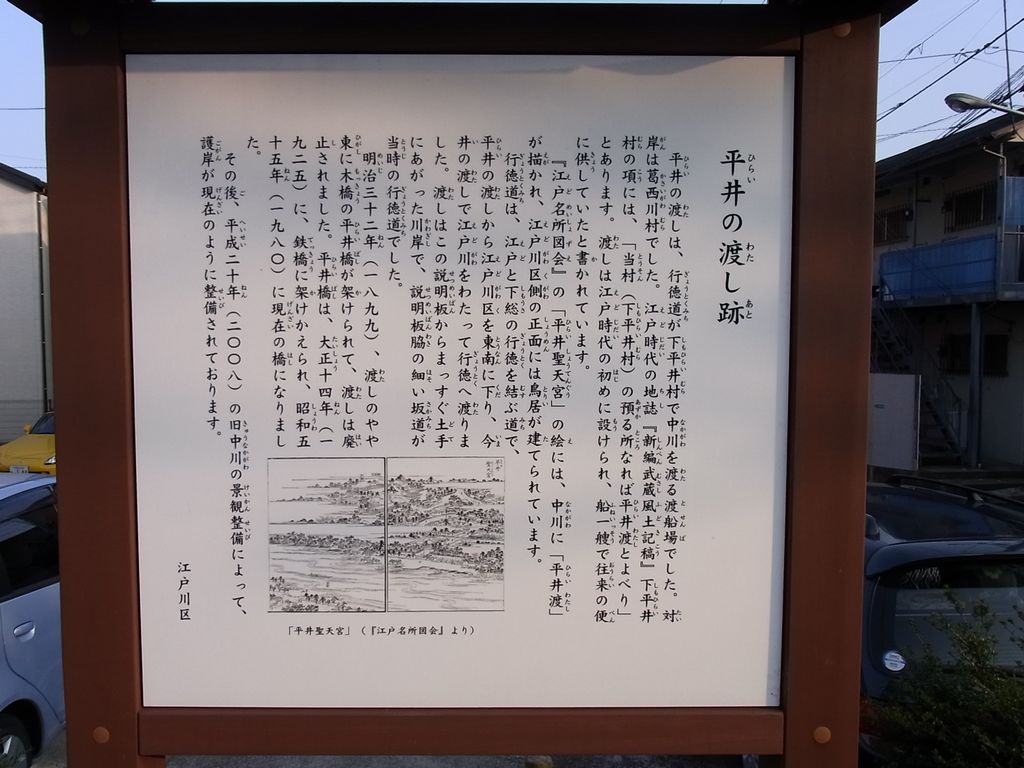 平井の渡し跡
平井の渡しは、行徳道が下平井村で中川を渡る渡船場でした。対
岸は葛西川村でした。江戸時代の地誌『新編武蔵風土記稿』下平井
村の項には、「当村（下平井村）の預る所なれば平井渡とよべり」
とあります。渡しは江戸時代の初めに設けられ、船一艘で往来の便
に供していたと書かれています。
『江戸名所図会』の「平井聖天宮」の絵には、中川に「平井渡」
が描かれ、江戸川区側の正面には鳥居が建てられています。
行徳道は、江戸と下総の行徳を結ぶ道で、
平井の渡しから江戸川区を東南に下り、今
井の渡しで江戸川をわたって行徳へ渡りま
した。渡しはこの説明板からまっすぐ土手
にあがった川岸で、説明板脇の細い坂道が
当時の行徳道でした。
明治三十二年（一八九九）、渡しのやや
東に木橋の平井橋が架けられて、渡しは廃
止されました。平井橋は、大正十四年（一
九二五）に、鉄橋に架けかえられ、昭和五
十五年（一九八〇）に現在の橋になりまし
た。
その後、平成二十年（二〇〇八）の旧中川の景観整備によって、
護岸が現在のように整備されております。
江戸川区
「平井聖天宮」（『江戸名所図会』より）